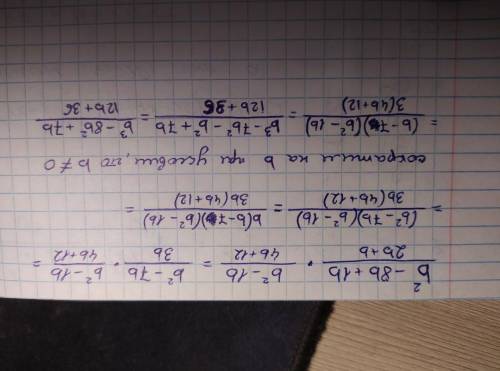 (b² - 8b + 1b)/(2b + b) · (b² - 1b)/(4b + 12) = (b² - 7b)/(3b) · (b² - 1b)/(4b + 12) =
= ((b² - 7b)(b² - 1b))/(3b(4b + 12)) = (b(b - 7)(b² - 1b))/(3b(4b + 12)) =
сократили на b при условии, что b ≠ 0
= ((b - 7)(b² - 1b))/(3(4b + 12)) = (b³ - 7b² - b² + 7b)/(12b + 36) = (b³ - 8b² + 7b)/(12b + 36)